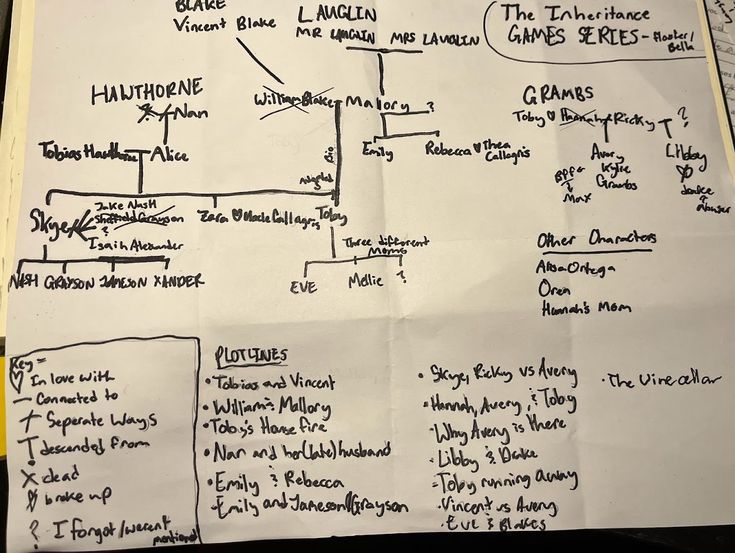 BLAKE
Vincent Blake
LAUGLIN
MR LAUGLIN MRS LAUGLIN
The Inheritance
GAMES SERIES - Hoster/
Bella
HAWTHORNE
? Nan
William Blake Mallory ?
GRAMBS
Toby ♡ Hannah Ricky ?
Tobias Hawthorne Alice
Bio
Emily
Rebecca ♥ Thea
Callagris
Avery
Kylie
Grambs
BFF
Max
Libby
drake
abuser
adopted
Skye
Jake Nash
Sheffield Grayson
?
Isaih Alexander
Zara ♥ Callagris
Toby
Three different
Moms
NASH GRAYSON JAMESON XANDER
EVE Mellie ?
Other Characters
Alisa Ortega
Oren
Hannah's Mom
Key =
♡ In love with
— Connected to
Seperate Ways
descended from
X dead
broke up
? I forgot/werent
mentioned
PLOTLINES
• Tobias and Vincent
• William & Mallory
• Toby's House fire
• Nan and her (late) husband
• Emily & Rebecca
• Emily and Jameson/Grayson
• Skye, Ricky vs Avery
• Hannah, Avery, & Toby
• Why Avery is there
• Libby & Drake
• Toby running away
• Vincent vs Avery
• Eve & Blakes
• The Vine cellar